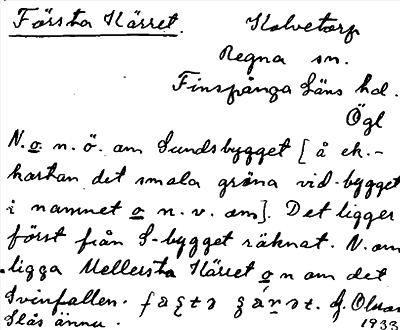 Första Kärret.
Holvetorp
Regna sn.
Finspånga Läns hd.
Ögl
N. o n. ö. om Sundsbygget [å ek.-
kartan det smala gröna vid-bygget
i namnet o n. v. om]. Det ligger
först från S-bygget räknat. N. om
ligga Mellersta Kärret o n om det
Svinfallen.
Slås ännu.
1933